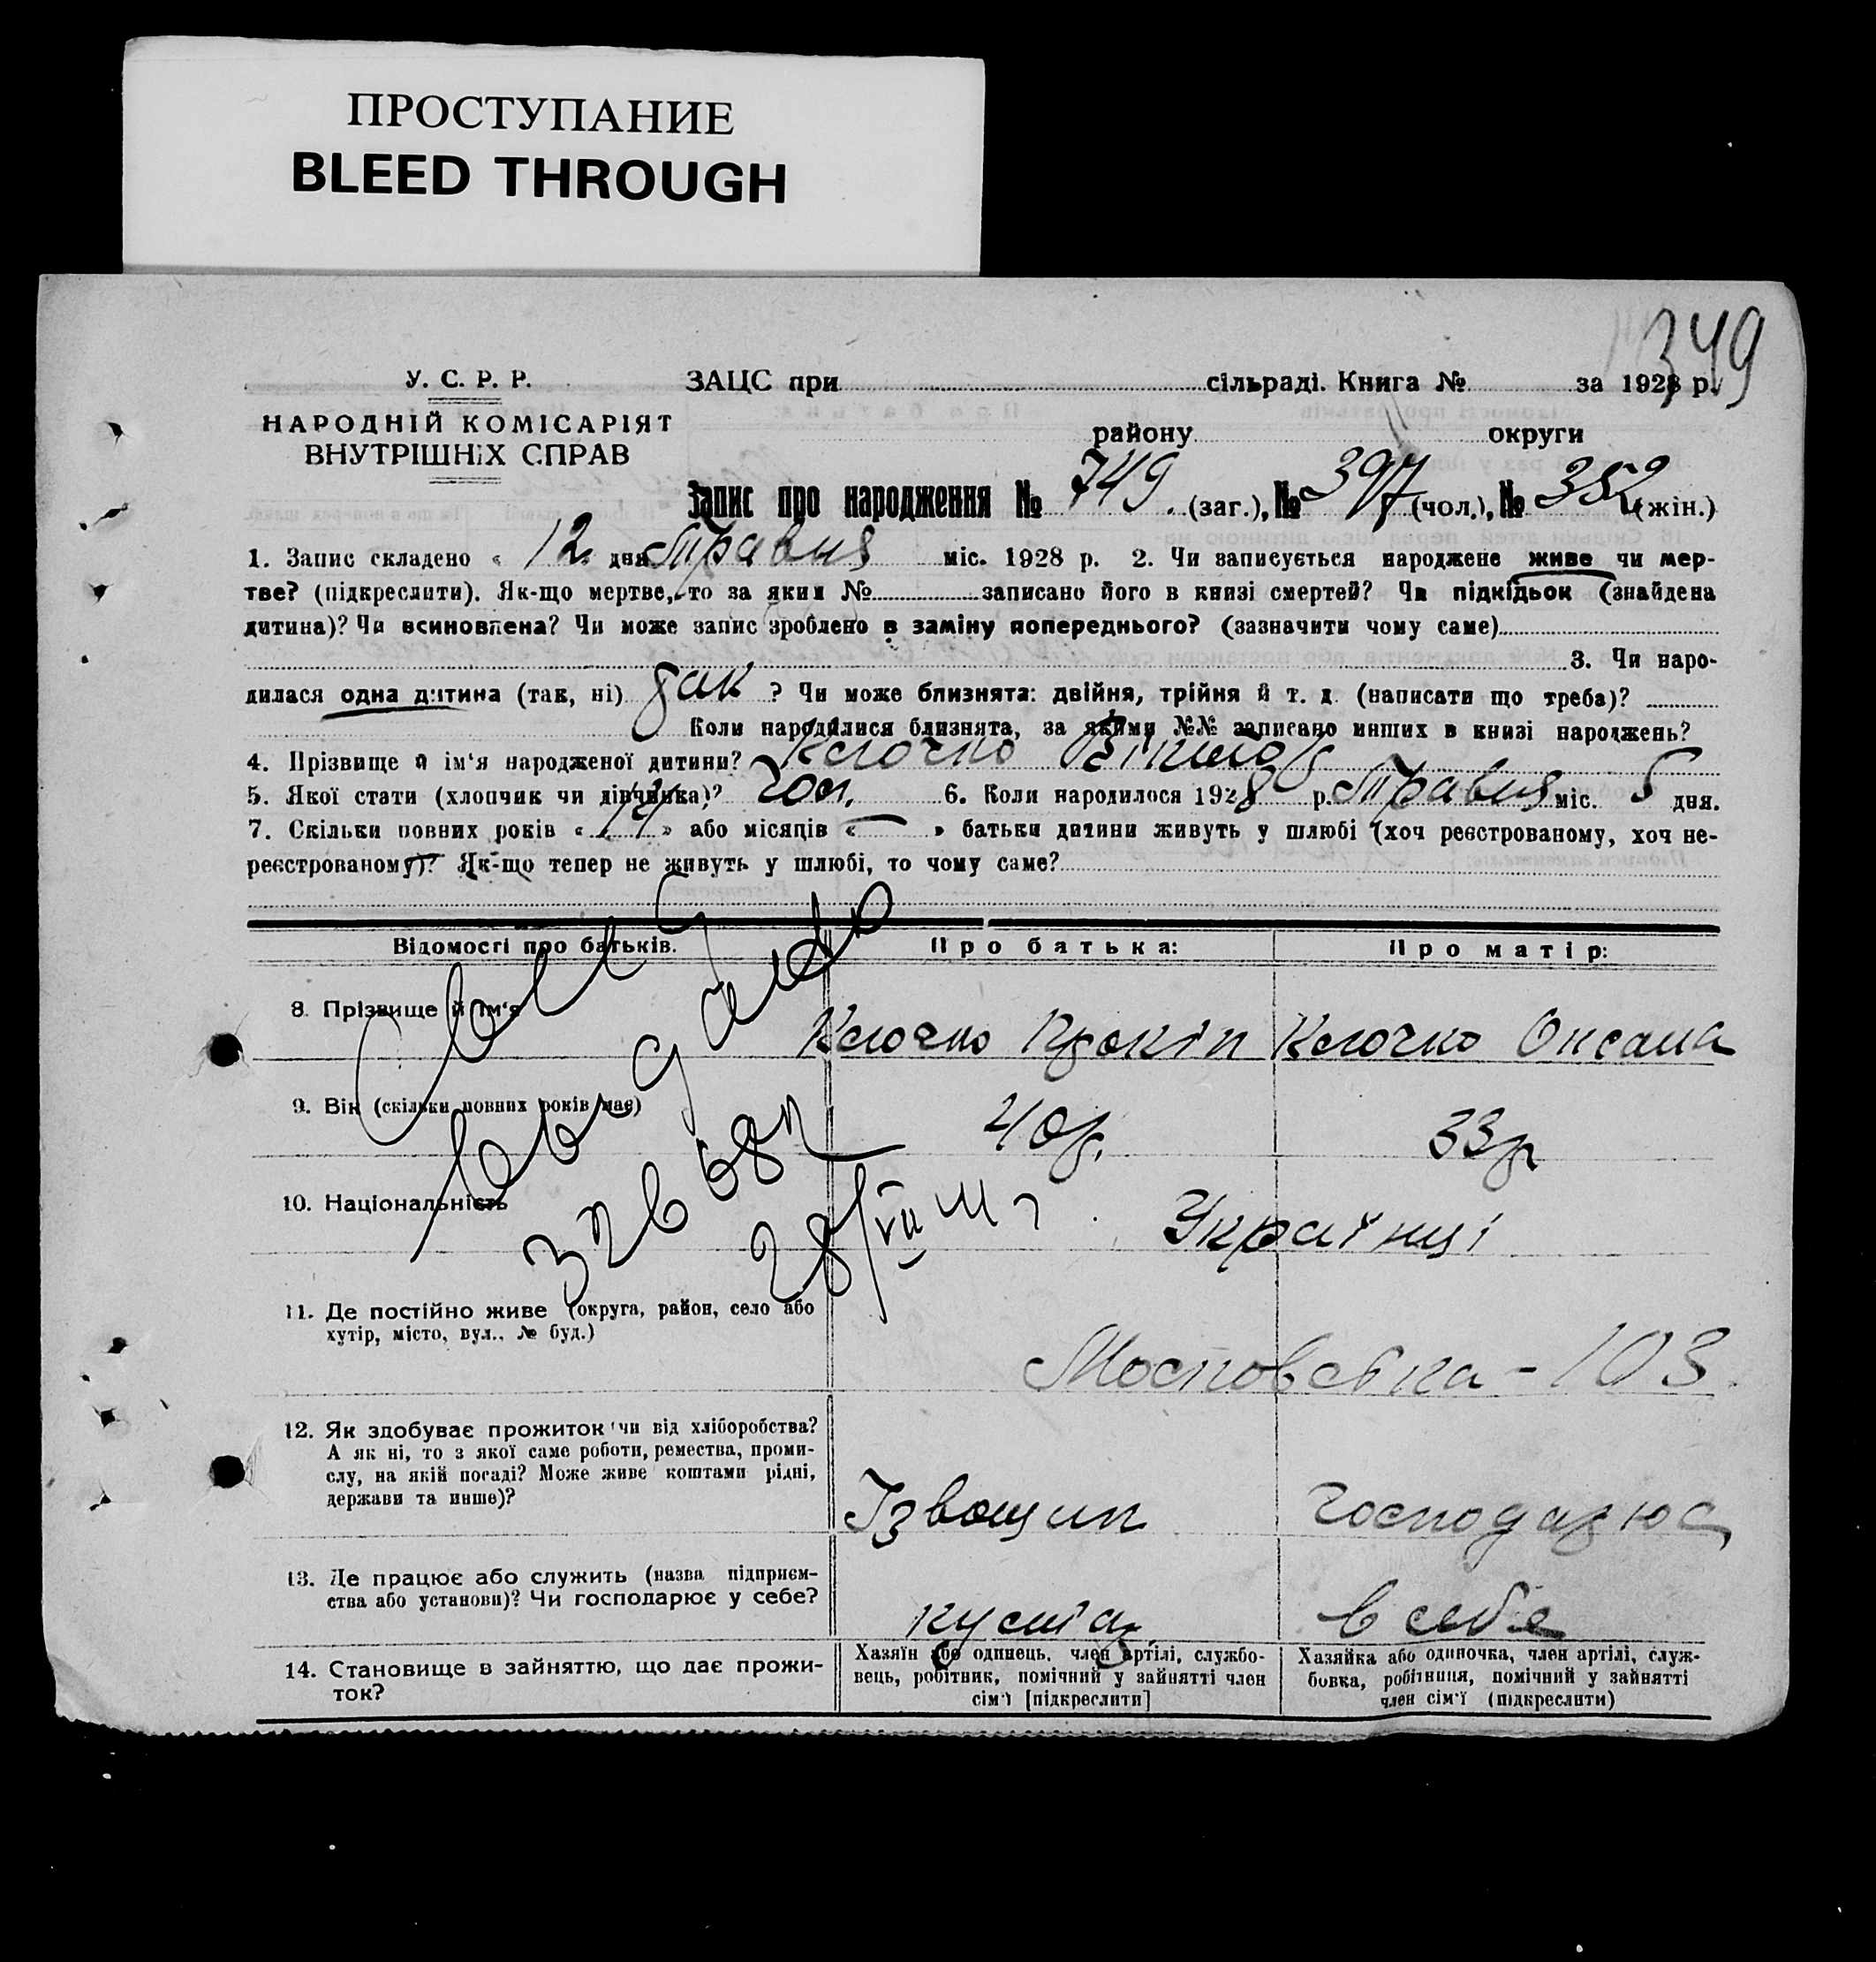 ПРОСТУПАНИЕ
BLEED THROUGH
349
У. С. Р. Р.
НАРОДНІЙ КОМІСАРІЯТ
ВНУТРІШНІХ СПРАВ
ЗАЦС при сільраді. Книга № за 1928 р.
району округи
Запис про народження № 749 (заг.), № 397 (чол.), № 352 (жін.)
1. Запис складено « 12 дня Травня міс. 1928 р. 2. Чи записується народжене живе чи мер-
тве? (підкреслити). Як-що мертве, то за яким № записано його в книзі смертей? Чи підкідьок (знайдена
дитина)? Чи всиновлена? Чи може запис зроблено в заміну попереднього? (зазначити чому саме)
3. Чи наро-
дилася одна дитина (так, ні) ? Чи може близнята: двійня, трійня й т. д. (написати що треба)?
Коли народилися близнята, за якими №№ записано инших в книзі народжень?
4. Прізвище й ім'я народженої дитини? Клочко Віктор
5. Якої стати (хлопчик чи дівчинка)? чол. 6. Коли народилося 1928 р. Травня міс. 5 дня.
7. Скільки повних років « » або місяців « — » батьки дитини живуть у шлюбі (хоч реєстрованому, хоч не-
реєстрованому)? Як-що тепер не живуть у шлюбі, то чому саме?
Відомості про батьків.
Про батька:
Про матір:
8. Прізвище й ім'я
Клочко Прокіп
Клочко Оксана
9. Вік (скільки повних років має)
40 р.
33 р
10. Національність
Українці
28/VII
11. Де постійно живе (округа, район, село або
хутір, місто, вул., № буд.)
Московська - 103
12. Як здобуває прожиток (чи від хліборобства?
А як ні, то з якої саме роботи, ремества, проми-
слу, на якій посаді? Може живе коштами рідні,
держави та инше)?
Ізвощик
господарює
13. Де працює або служить (назва підприєм-
ства або установи)? Чи господарює у себе?
кустар
в себе
14. Становище в зайняттю, що дає прожи-
ток?
Хазяїн або одинець, член артілі, службо-
вець, робітник, помічний у зайнятті член
сім'ї [підкреслити]
Хазяйка або одиночка, член артілі, служ-
бовка, робітниця, помічний у зайнятті
член сім'ї (підкреслити)